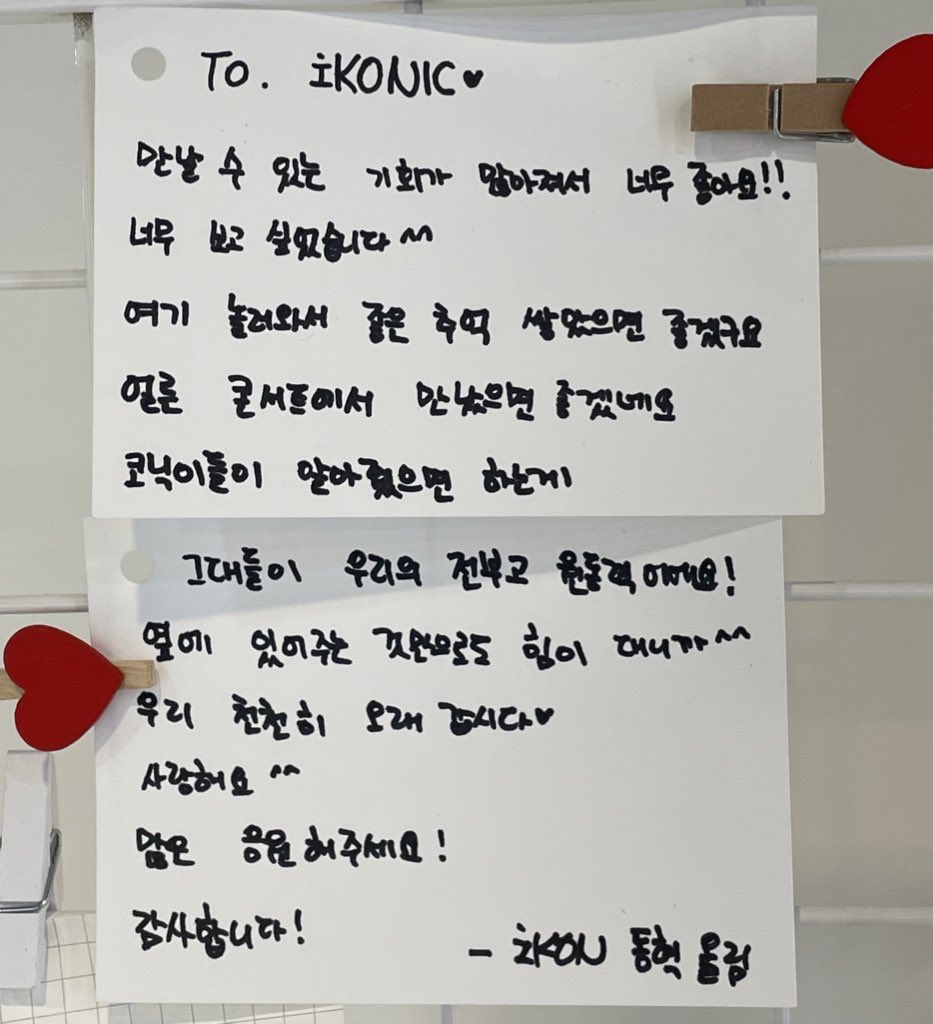 TO. iKONIC♥
만날 수 있는 기회가 많아져서 너무 좋아요!!
너무 보고 싶었습니다^^
여기 놀러와서 좋은 추억 쌓았으면 좋겠구요
얼른 콘서트에서 만났으면 좋겠네요
코닉이들이 알아줬으면 하는게
그대들이 우리의 전부고 원동력이에요!
옆에 있어주는 것만으로도 힘이 대니까^^
우리 천천히 오래 갑시다♥
사랑해요^^
많은 응원해주세요!
감사합니다!
- iKON 동혁 올림